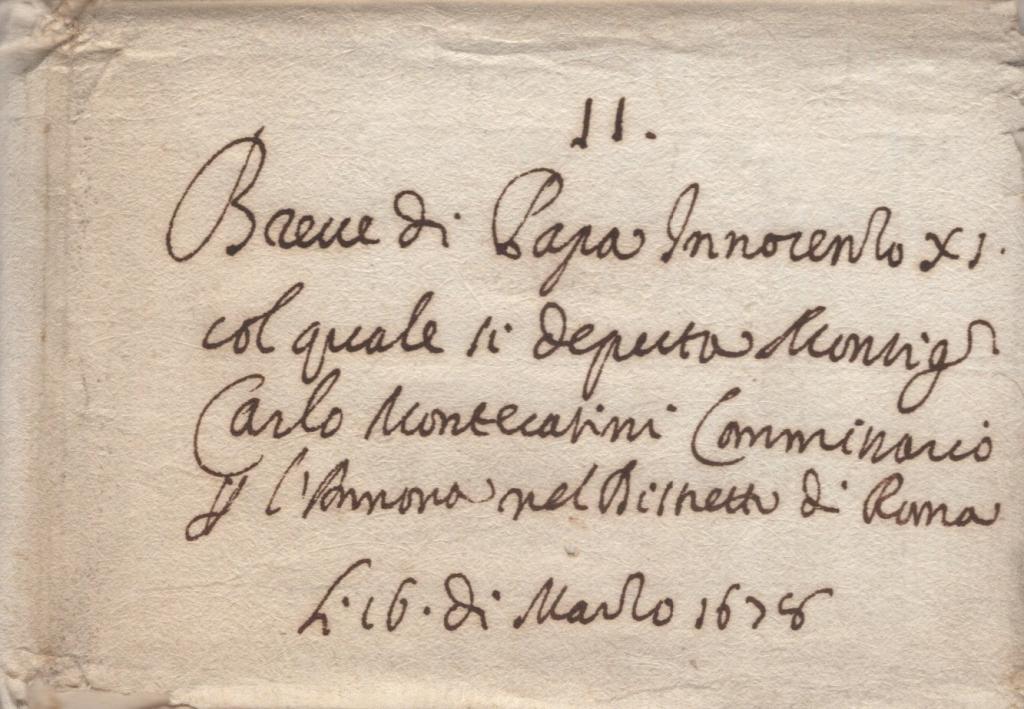 11.
Breve di Papa Innocenzo XI.
col quale si deputa Monsig.r
Carlo Montecatini Commissario
p l'Annona nel Distretto di Roma
Li 16. di Marzo 1678